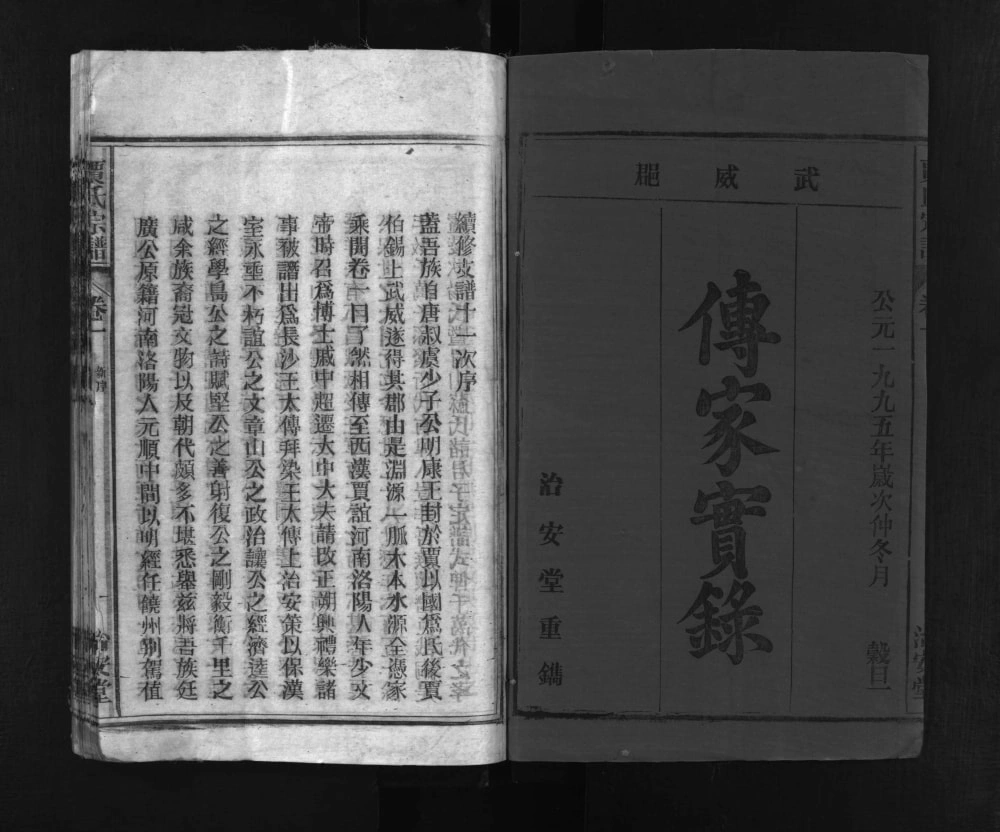 武威郡
公元一九九五年歲次仲冬月 穀旦
傳家實錄
治安堂重鐫
續修支譜十一次序
蓋吾族自唐叔虞少子公明康王封於賈以國爲氏後賈
伯錫土武威遂得其郡由是淵源一脈木本水源全憑家
乘開卷一目了然相傳至西漢賈誼河南洛陽人年少文
帝時召爲博士歲中超遷大中大夫請改正朔興禮樂諸
事被譖出爲長沙王太傅拜梁王太傅上治安策以保漢
室永垂不朽誼公之文章山公之政治讓公之經濟逵公
之經學島公之詩賦堅公之善射復公之剛毅衡千里之
咸余族裔冠文物以及朝代頗多不堪悉舉兹將吾族廷
廣公原籍河南洛陽人元順中間以明經任饒州別駕值
賈氏宗譜
卷一
新序
一
治安堂